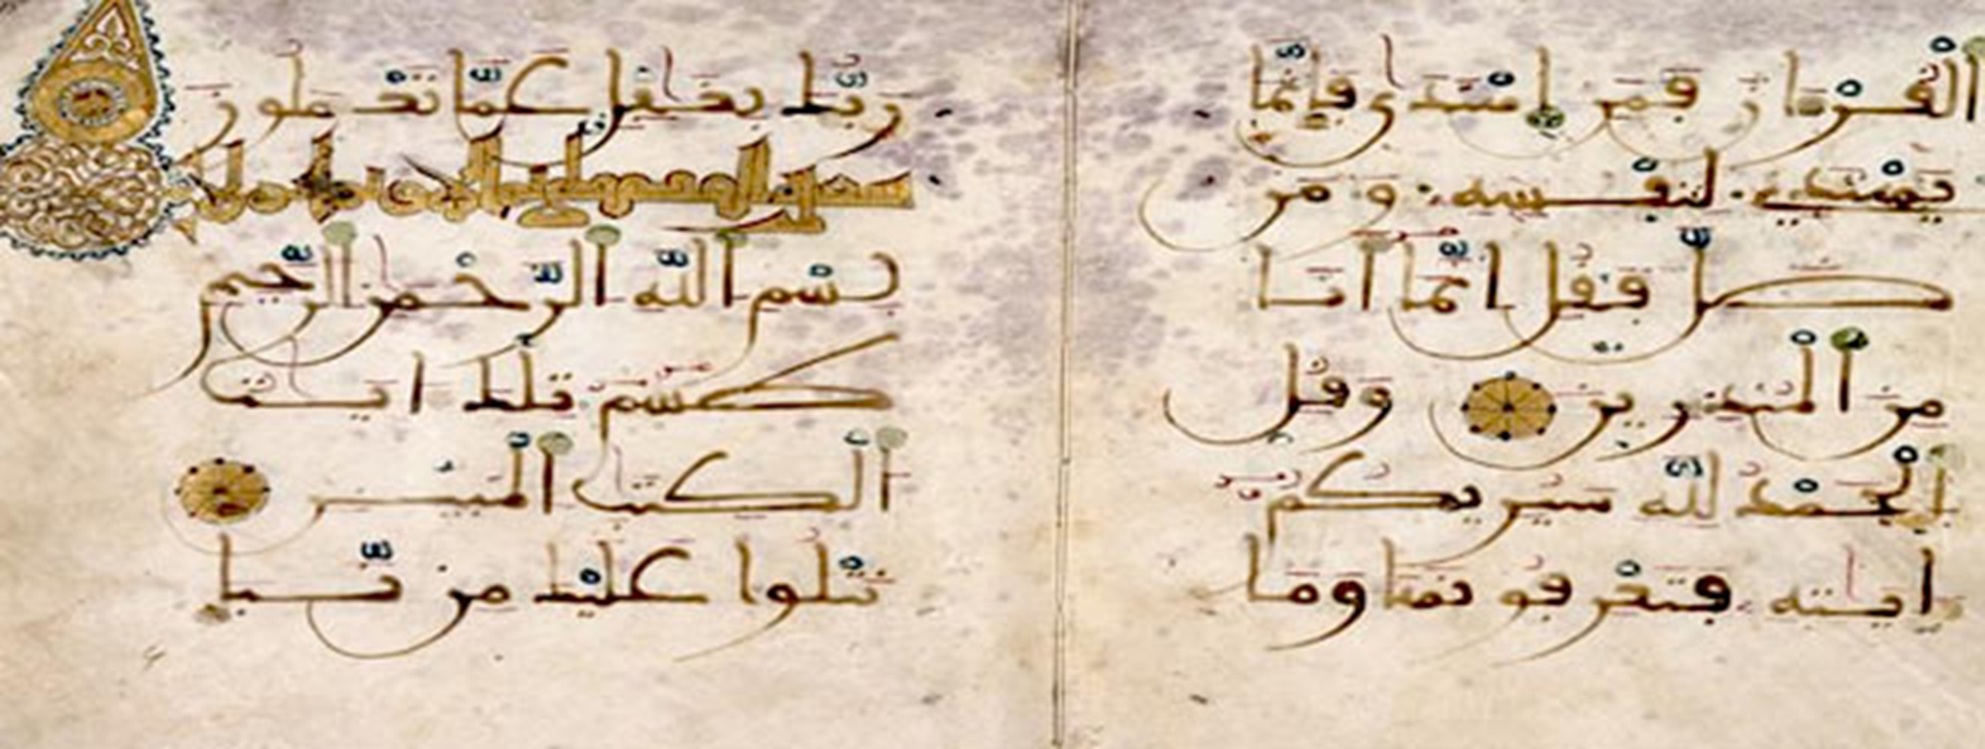 الْقُرْءَانَ فَمَنِ اهْتَدَىٰ فَإِنَّمَا
يَهْتَدِي لِنَفْسِهِ وَمَن
ضَلَّ فَقُلْ إِنَّمَا أَنَا
مِنَ الْمُنذِرِينَ وَقُلِ
الْحَمْدُ لِلَّهِ سَيُرِيكُمْ
ءَايَٰتِهِ فَتَعْرِفُونَهَا وَمَا
رَبُّكَ بِغَٰفِلٍ عَمَّا تَعْمَلُونَ
بِسْمِ اللَّهِ الرَّحْمَٰنِ الرَّحِيمِ
طسم تِلْكَ ءَايَٰتُ
الْكِتَٰبِ الْمُبِينِ
نَتْلُوا عَلَيْكَ مِن نَّبَإِ